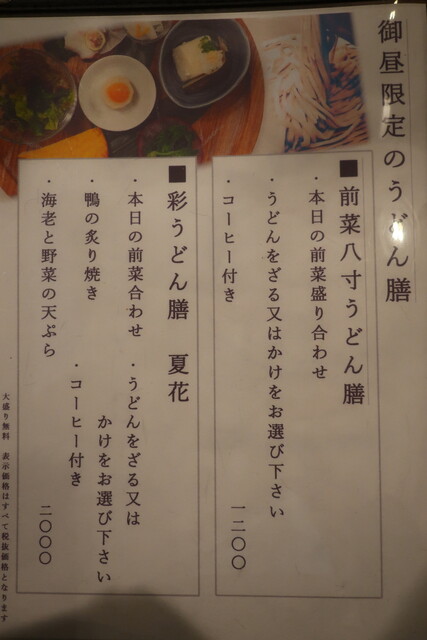 御昼限定のうどん膳
■前菜八寸うどん膳
・本日の前菜盛り合わせ
・うどんをざる又はかけをお選び下さい
・コーヒー付き
一二〇〇
■彩うどん膳 夏花
・本日の前菜合わせ
・鴨の炙り焼き
・海老と野菜の天ぷら
・うどんをざる又は
かけをお選び下さい
・コーヒー付き
二〇〇〇
大盛り無料 表示価格はすべて税抜価格となります